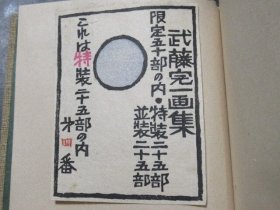 武藤完一画集
限定五十部の内・特装二十五部
並装二十五部
これは特装二十五部の内
才四番